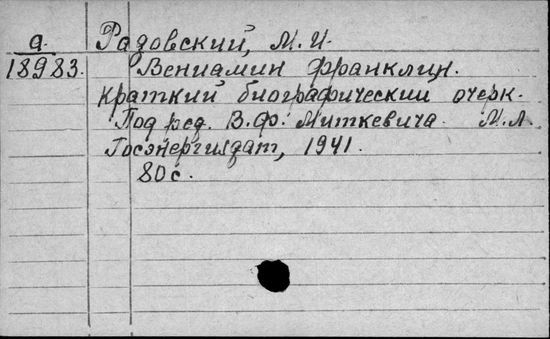 а. Радовский, М.И.
18983. Вениамин Франклин.
Краткий биографический очерк.
Под ред. В.Ф. Миткевича. М.Л.
Госэнергиздат, 1941.
80с.